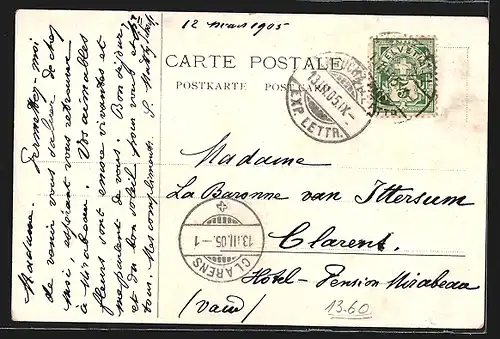 12 mars 1905
CARTE POSTALE
POSTKARTE POST CARD
HELVETIA
13.III.05.IX–
EXP. LETTR.
Madame
La Baronne van Ittersum
Clarent.
Hotel-Pension Mirabeau
(vaud)
13.60
13.III.05.–1
CLARENS
Madame. Permettez-moi
de venir vous saluer de chez
moi, espérant vous retrouver
à Mirabeau. Vos aimables
fleurs sont encore vivantes et
me parlent de vous. Bon séjour
et du bon soleil pour vous et
tous. Mes compliments. S.